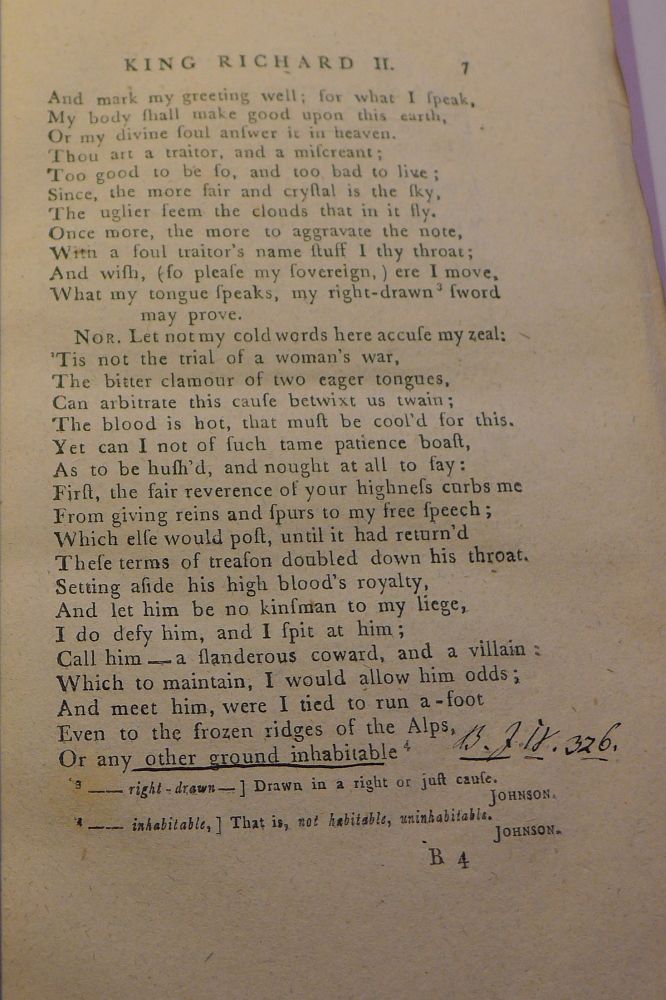 KING RICHARD II. 7
And mark my greeting well; for what I ſpeak,
My body ſhall make good upon this earth,
Or my divine ſoul anſwer it in heaven.
Thou art a traitor, and a miſcreant;
Too good to be ſo, and too bad to live;
Since, the more fair and cryſtal is the ſky,
The uglier ſeem the clouds that in it fly.
Once more, the more to aggravate the note,
With a foul traitor's name ſtuff I thy throat;
And wiſh, (ſo pleaſe my ſovereign,) ere I move,
What my tongue ſpeaks, my right-drawn³ ſword
may prove.
NOR. Let not my cold words here accuſe my zeal:
'Tis not the trial of a woman's war,
The bitter clamour of two eager tongues,
Can arbitrate this cauſe betwixt us twain;
The blood is hot, that muſt be cool'd for this.
Yet can I not of ſuch tame patience boaſt,
As to be huſh'd, and nought at all to ſay:
Firſt, the fair reverence of your highneſs curbs me
From giving reins and ſpurs to my free ſpeech;
Which elſe would poſt, until it had return'd
Theſe terms of treaſon doubled down his throat.
Setting aſide his high blood's royalty,
And let him be no kinſman to my liege,
I do defy him, and I ſpit at him;
Call him—a ſlanderous coward, and a villain:
Which to maintain, I would allow him odds;
And meet him, were I tied to run a-foot
Even to the frozen ridges of the Alps,
Or any other ground inhabitable⁴ B. J. IV. 326.
³ —— right-drawn—] Drawn in a right or juſt cauſe.
JOHNSON.
⁴ —— inhabitable,] That is, not habitable, uninhabitable.
JOHNSON.
B 4